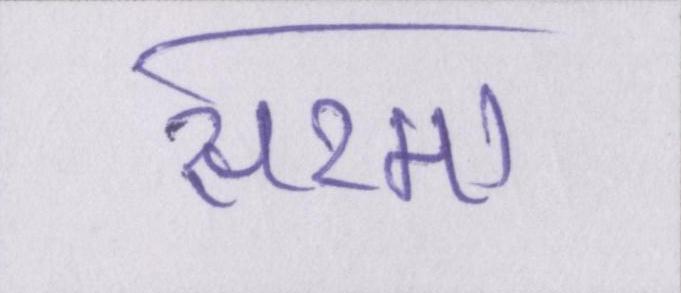 सरमा